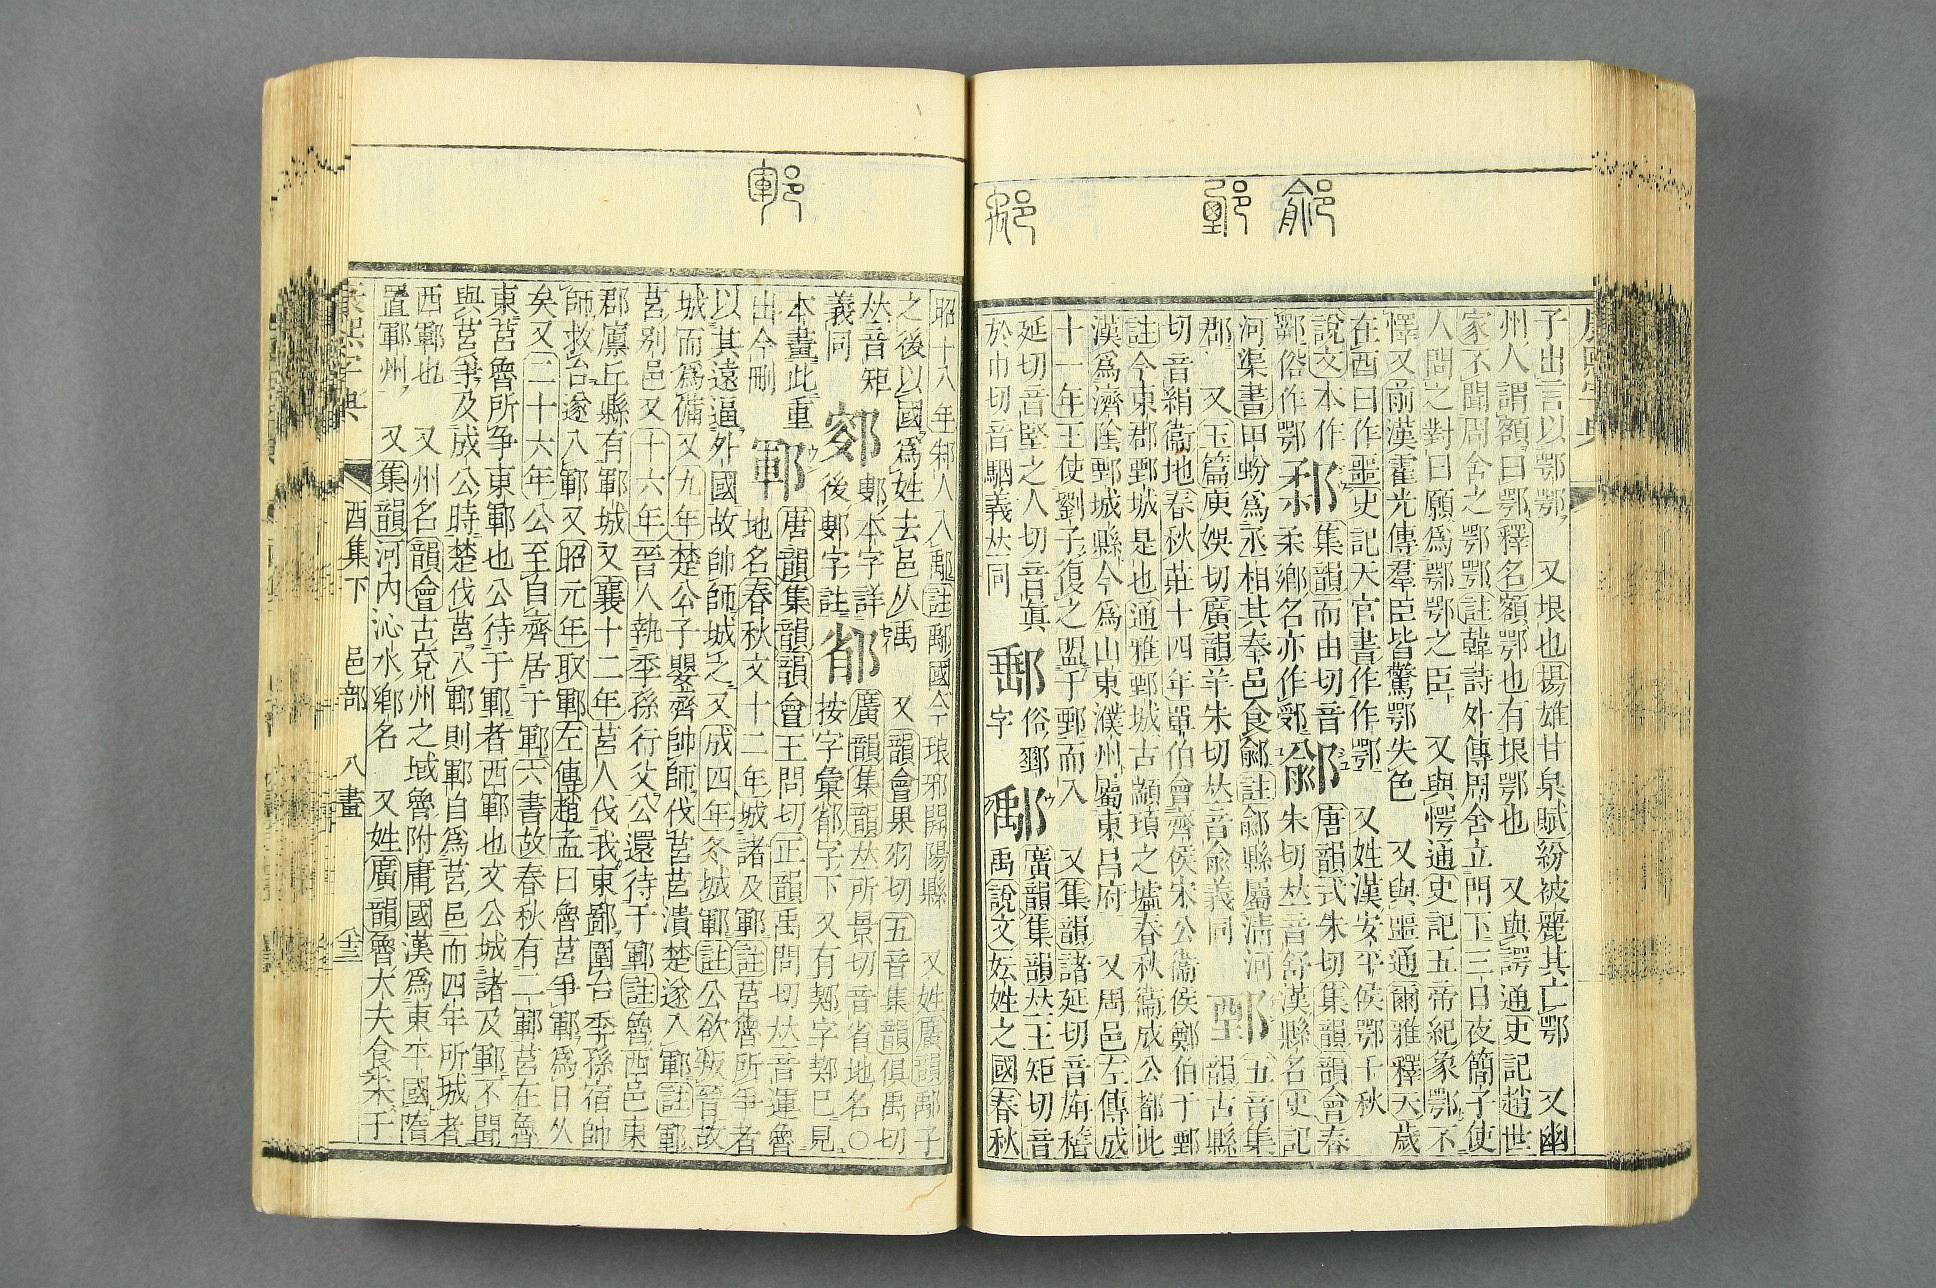 子出言以鄂鄂 又垠也揚雄甘泉賦紛被麗其亡鄂 又幽
州人謂額曰鄂釋名額鄂也有垠鄂也 又與諤通史記趙世
家不聞周舍之鄂鄂註韓詩外傳周舍立門下三日夜簡子使
人問之對曰願爲鄂鄂之臣 又與愕通史記五帝紀象鄂不
懌又前漢霍光傳羣臣皆驚鄂失色 又與噩通爾雅釋天歲
在酉曰作噩史記天官書作作鄂 又姓漢安平侯鄂千秋
說文本作 集韻而由切音 鄃 唐韻式朱切集韻韻會春
俗作鄂 柔鄉名亦作 朱切𠀤音舒漢縣名史記
河渠書田蚡爲丞相其奉邑食鄃註鄃縣屬淸河 鄄 五音集
郡 又玉篇庾娛切廣韻羊朱切𠀤音俞義同 韻古縣
切音絹衞地春秋莊十四年單伯會齊侯宋公衞侯鄭伯于鄄
註今東郡鄄城是也通雅鄄城古顓頊之墟春秋衞成公都此
漢爲濟陰鄄城縣今爲山東濮州屬東昌府 又周邑左傳成
十一年王使劉子復之盟于鄄而入 又集韻諸延切音旃稽
延切音堅之人切音眞 俗 鄅 廣韻集韻𠀤王矩切音
於巾切音駰義𠀤同 字 禹說文妘姓之國春秋
昭十八年邾人入鄅註鄅國今琅邪開陽縣 又姓廣韻鄅子
之後以國爲姓去邑从禹 又韻會果羽切五音集韻俱禹切
𠀤音矩 本字詳 廣韻集韻𠀤所景切音省地名○
義同 後 字註 按字彙 字下又有 字 已見
本畫此重 鄆 唐韻集韻韻會王問切正韻禹問切𠀤音運魯
出今刪 地名春秋文十二年城諸及鄆註莒魯所爭者
以其遠逼外國故帥師城之 又成四年冬城鄆註公欲叛晉故
城而爲備又九年楚公子嬰齊帥師伐莒莒潰楚遂入鄆註鄆
莒別邑又十六年晉人執季孫行父公還待于鄆註魯西邑東
郡廩丘縣有鄆城又襄十二年莒人伐我東鄙圍台季孫宿帥
師救台遂入鄆又昭元年取鄆左傳趙孟曰魯莒爭鄆爲日久
矣又二十六年公至自齊居于鄆六書故春秋有二鄆莒在魯
東莒魯所爭東鄆也公待于鄆者西鄆也文公城諸及鄆不聞
與莒爭及成公時楚伐莒入鄆則鄆自爲莒邑而四年所城者
西鄆也 又州名韻會古兗州之域魯附庸國漢爲東平國隋
置鄆州 又集韻河內沁水鄉名 又姓廣韻魯大夫食采于
康熙字典 酉集下 邑部 八畫